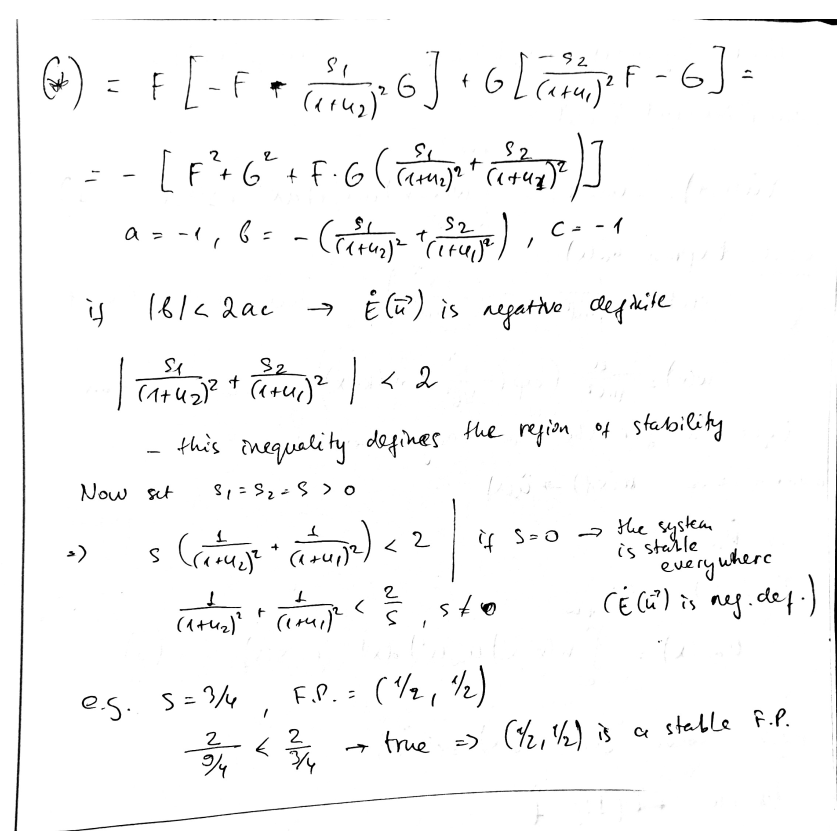 (*) = F [ -F - s₁/(1+u₂)² G ] + G [ -s₂/(1+u₁)² F - G ] =
= - [ F² + G² + F·G ( s₁/(1+u₂)² + s₂/(1+u₁)² ) ]
a = -1, b = - ( s₁/(1+u₂)² + s₂/(1+u₁)² ), c = -1
if |b| < 2ac → Ė(u⃗) is negative definite
| s₁/(1+u₂)² + s₂/(1+u₁)² | < 2
- this inequality defines the region of stability
Now set s₁ = s₂ = s > 0
=) s ( 1/(1+u₂)² + 1/(1+u₁)² ) < 2 | if s=0 → the system
is stable
everywhere
1/(1+u₂)² + 1/(1+u₁)² < 2/s, s ≠ 0 (Ė(u⃗) is neg. def.)
e.g. s = 3/4, F.P. = (1/2, 1/2)
2/(9/4) < 2/(3/4) → true => (1/2, 1/2) is a stable F.P.